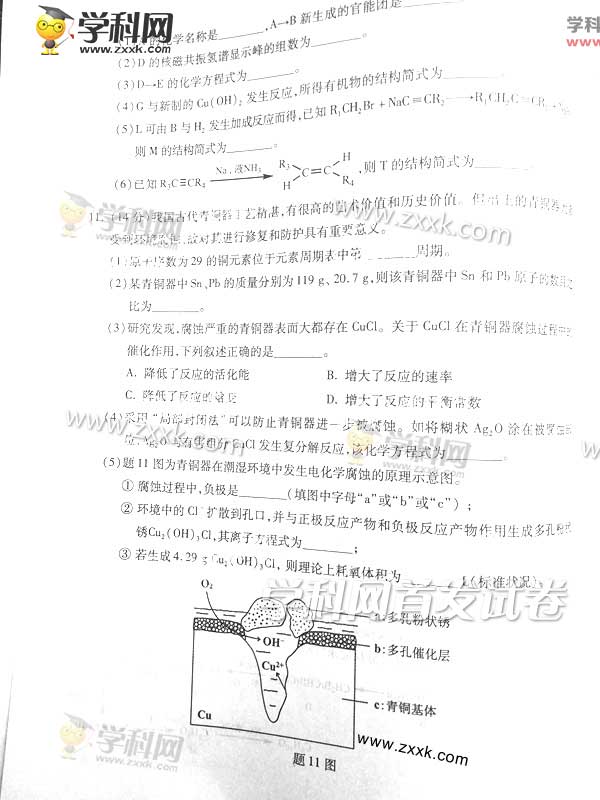 学科网 www.zxxk.com
学名称是________,A→B新生成的官能团是
(2)D的核磁共振氢谱显示峰的组数为________。
(3)D→E的化学方程式为________。
(4)G与新制的Cu(OH)₂发生反应,所得有机物的结构简式为________
(5)L可由B与H₂发生加成反应而得,已知R₁CH₂Br+NaC≡CR₂→R₁CH₂C≡CR₂
则M的结构简式为________。
(6)已知R₃C≡CR₄ Na、液NH₃ R₃ H C=C H R₄ ,则T的结构简式为________
11.(14分)我国古代青铜器工艺精湛,有很高的艺术价值和历史价值。但出土的青铜器
受到环境腐蚀,故对其进行修复和防护具有重要意义。
(1)原子序数为29的铜元素位于元素周期表中第________周期。
(2)某青铜器中Sn、Pb的质量分别为119 g、20.7 g,则该青铜器中Sn和Pb原子的数目之
比为________。
(3)研究发现,腐蚀严重的青铜器表面大都存在CuCl。关于CuCl在青铜器腐蚀过程中的
催化作用,下列叙述正确的是________。
A. 降低了反应的活化能 B. 增大了反应的速率
C. 降低了反应的焓变 D. 增大了反应的平衡常数
(4)采用“局部封闭法”可以防止青铜器进一步被腐蚀。如将糊状Ag₂O涂在被腐蚀部
位,Ag₂O与有害组分CuCl发生复分解反应,该化学方程式为________。
(5)题11图为青铜器在潮湿环境中发生电化学腐蚀的原理示意图。
① 腐蚀过程中,负极是________(填图中字母“a”或“b”或“c”);
② 环境中的Cl⁻扩散到孔口,并与正极反应产物和负极反应产物作用生成多孔粉状
锈Cu₂(OH)₃Cl,其离子方程式为________;
③ 若生成4.29 g Cu₂(OH)₃Cl,则理论上耗氧体积为________L(标准状况)。
学科网首发试卷
O₂
a:多孔粉状锈
OH⁻
b:多孔催化层
Cu²⁺
c:青铜基体
Cu
www.zxxk.com
题11图